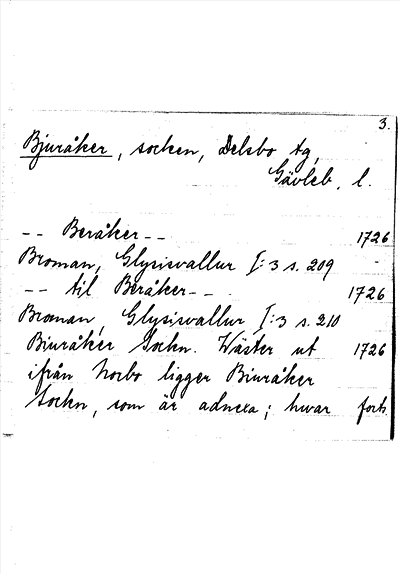 3.
Bjuråker, socken, Delsbo tg,
Gävleb. l.
-- Beråker -- 1726
Broman, Glysisvallur I:3 s. 209
-- til Beråker -- 1726
Broman, Glysisvallur I:3 s. 210
Biuråker Sockn. Wäster ut 1726
ifrån Norbo ligger Biuråker
Sockn, som är adnexa; hwar forts.